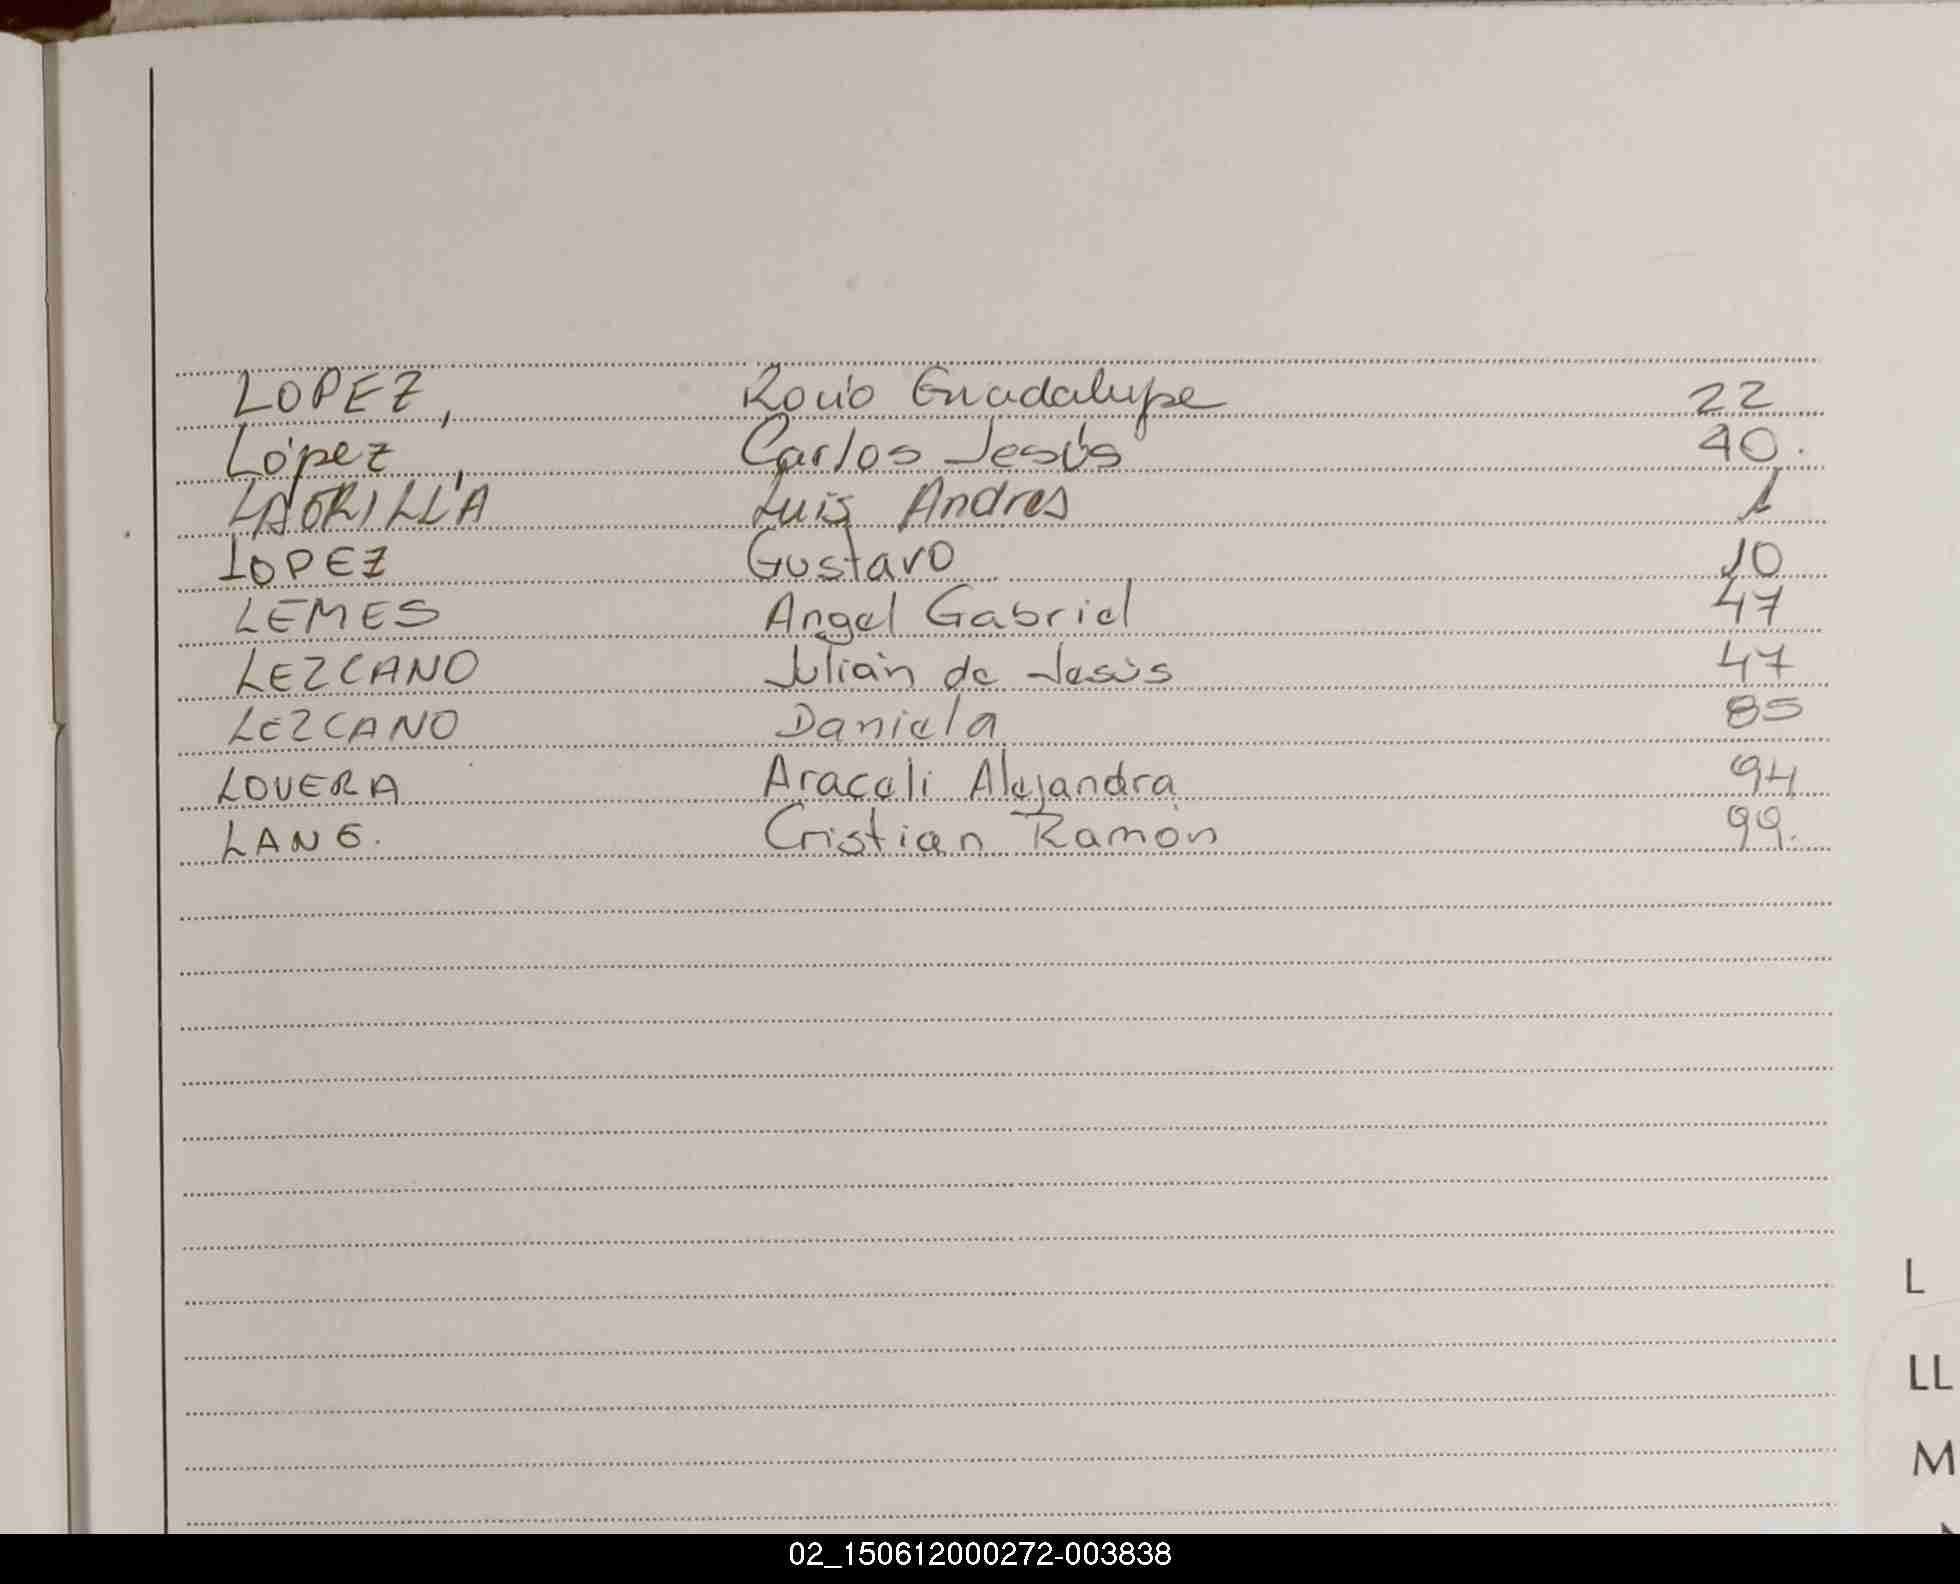 LOPEZ, Rocío Guadalupe 22
López, Carlos Jesús 40.
Luis Andres 1
LOPEZ Gustavo 10
LEMES Angel Gabriel 47
LEZCANO Julián de Jesús 47
LEZCANO Daniela 85
LOVERA Araceli Alejandra 94
LANG. Cristian Ramón 99.
L
LL
M
02_150612000272-003838